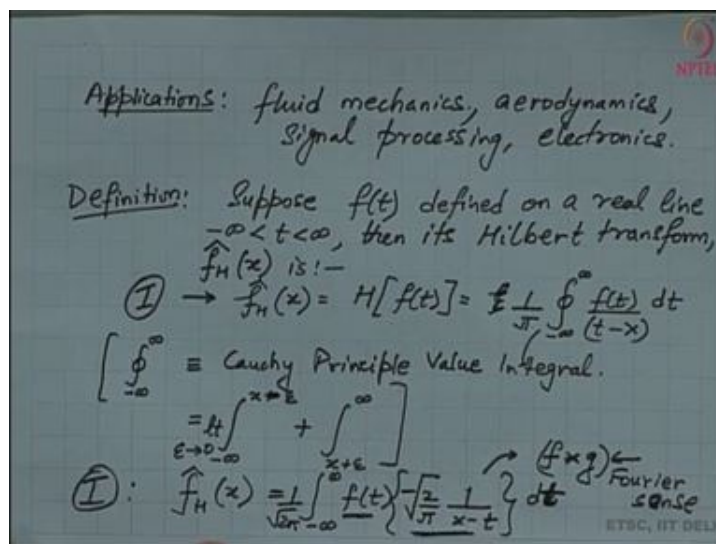 NPTEL
Applications: fluid mechanics, aerodynamics,
signal processing, electronics.
Definition: Suppose f(t) defined on a real line
-∞ < t < ∞, then its Hilbert transform,
f̂_H(x) is:-
Ⓘ → f̂_H(x) = H[f(t)] = 1/π ∮_{-∞}^{∞} f(t)/(t-x) dt
[ ∮_{-∞}^{∞} ≡ Cauchy Principle Value Integral.
= lt_{ε→0} ∫_{-∞}^{x-ε} + ∫_{x+ε}^{∞} ]
Ⓘ: f̂_H(x) = 1/√2π ∫_{-∞}^{∞} f(t) { -√(2/π) 1/(x-t) } dt → (f*g) ← Fourier sense
ETSC, IIT DEL